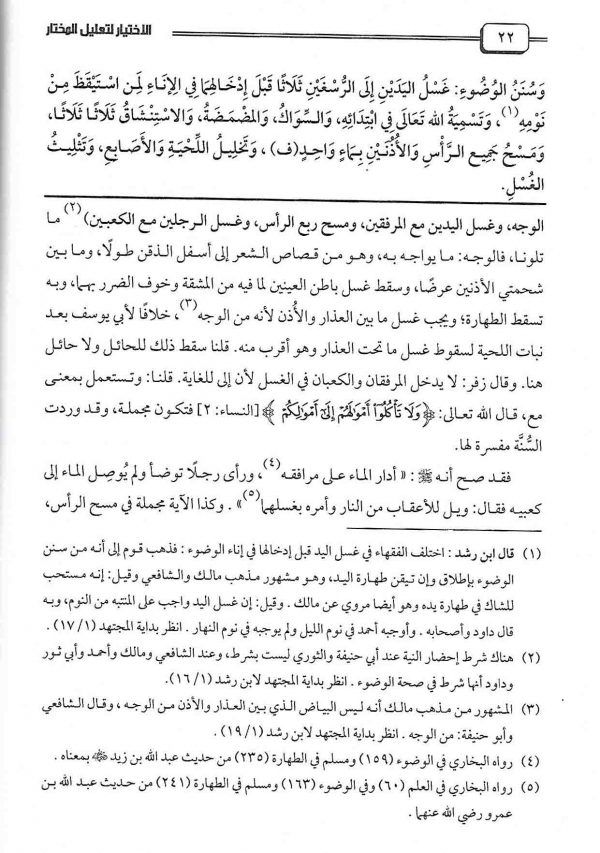 ٢٢
الاختيار لتعليل المختار
وَسُنَنُ الوُضُوءِ: غَسْلُ اليَدَيْنِ إِلَى الرُّسْغَيْنِ ثَلَاثًا قَبْلَ إِدْخَالِهِمَا فِي الإِنَاءِ لِمَنِ اسْتَيْقَظَ مِنْ
نَوْمِهِ(١)، وَتَسْمِيَةُ الله تَعَالَى فِي ابْتِدَائِهِ، وَالسِّوَاكُ، وَالمَضْمَضَةُ، وَالاسْتِنْشَاقُ ثَلَاثًا ثَلَاثًا،
وَمَسْحُ جَمِيعِ الرَّأْسِ وَالأُذُنَيْنِ بِمَاءٍ وَاحِدٍ(ف)، وَتَخْلِيلُ اللِّحْيَةِ وَالأَصَابِعِ، وَتَثْلِيثُ
الغُسْلِ.
الوجه، وغسل اليدين مع المرفقين، ومسح ربع الرأس، وغسل الرجلين مع الكعبين)(٢) ما
تلونا، فالوجه: ما يواجه به، وهو من قصاص الشعر إلى أسفل الذقن طولًا، وما بين
شحمتي الأذنين عرضًا، وسقط غسل باطن العينين لما فيه من المشقة وخوف الضرر بهما، وبه
تسقط الطهارة؛ ويجب غسل ما بين العذار والأُذن لأنه من الوجه(٣)، خلافًا لأبي يوسف بعد
نبات اللحية لسقوط غسل ما تحت العذار وهو أقرب منه. قلنا سقط ذلك للحائل ولا حائل
هنا. وقال زفر: لا يدخل المرفقان والكعبان في الغسل لأن إلى للغاية. قلنا: وتستعمل بمعنى
مع، قال الله تعالى: ﴿وَلَا تَأْكُلُوٓا۟ أَمْوَٰلَهُمْ إِلَىٰٓ أَمْوَٰلِكُمْ﴾ [النساء: ٢] فتكون مجملة، وقد وردت
السُّنَّة مفسرة لها.
فقد صح أنه ﷺ: «أدار الماء على مرافقه(٤)، ورأى رجلًا توضأ ولم يُوصِل الماء إلى
كعبيه فقال: ويل للأعقاب من النار وأمره بغسلهما(٥)». وكذا الآية مجملة في مسح الرأس،
(١) قال ابن رشد : اختلف الفقهاء في غسل اليد قبل إدخالها في إناء الوضوء : فذهب قوم إلى أنه من سنن
الوضوء بإطلاق وإن تيقن طهارة اليد، وهو مشهور مذهب مالك والشافعي وقيل: إنه مستحب
للشاك في طهارة يده وهو أيضا مروي عن مالك . وقيل: إن غسل اليد واجب على المنتبه من النوم، وبه
قال داود وأصحابه . وأوجبه أحمد في نوم الليل ولم يوجبه في نوم النهار . انظر بداية المجتهد (١/ ١٧) .
(٢) هناك شرط إحضار النية عند أبي حنيفة والثوري ليست بشرط، وعند الشافعي ومالك وأحمد وأبي ثور
وداود أنها شرط في صحة الوضوء . انظر بداية المجتهد لابن رشد (١/ ١٦).
(٣) المشهور من مذهب مالك أنه ليس البياض الذي بين العذار والأذن من الوجه ، وقال الشافعي
وأبو حنيفة: من الوجه . انظر بداية المجتهد لابن رشد (١/ ١٩) .
(٤) رواه البخاري في الوضوء (١٥٩) ومسلم في الطهارة (٢٣٥) من حديث عبد الله بن زيد ﷺ بمعناه .
(٥) رواه البخاري في العلم (٦٠) وفي الوضوء (١٦٣) ومسلم في الطهارة (٢٤١) من حديث عبد الله بن
عمرو رضي الله عنهما .